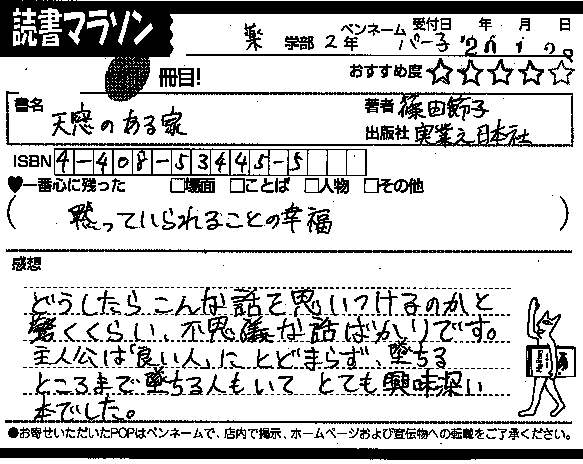 読書マラソン
薬 学部 2年 ペンネーム パー子 受付日 年 月 日
冊目! おすすめ度 ☆☆☆☆☆
書名 天窓のある家
著者 篠田節子
出版社 実業之日本社
ISBN 4-408-53445-5
♥一番心に残った □場面 □ことば □人物 □その他
( 黙っていられることの幸福 )
感想
どうしたらこんな話を思いつけるのかと
驚くくらい、不思議な話ばかりです。
主人公は「良い人」にとどまらず、堕ちる
ところまで堕ちる人もいて とても興味深い
本でした。
●お寄せいただいたPOPはペンネームで、店内で掲示、ホームページおよび宣伝物への転載をご了承ください。